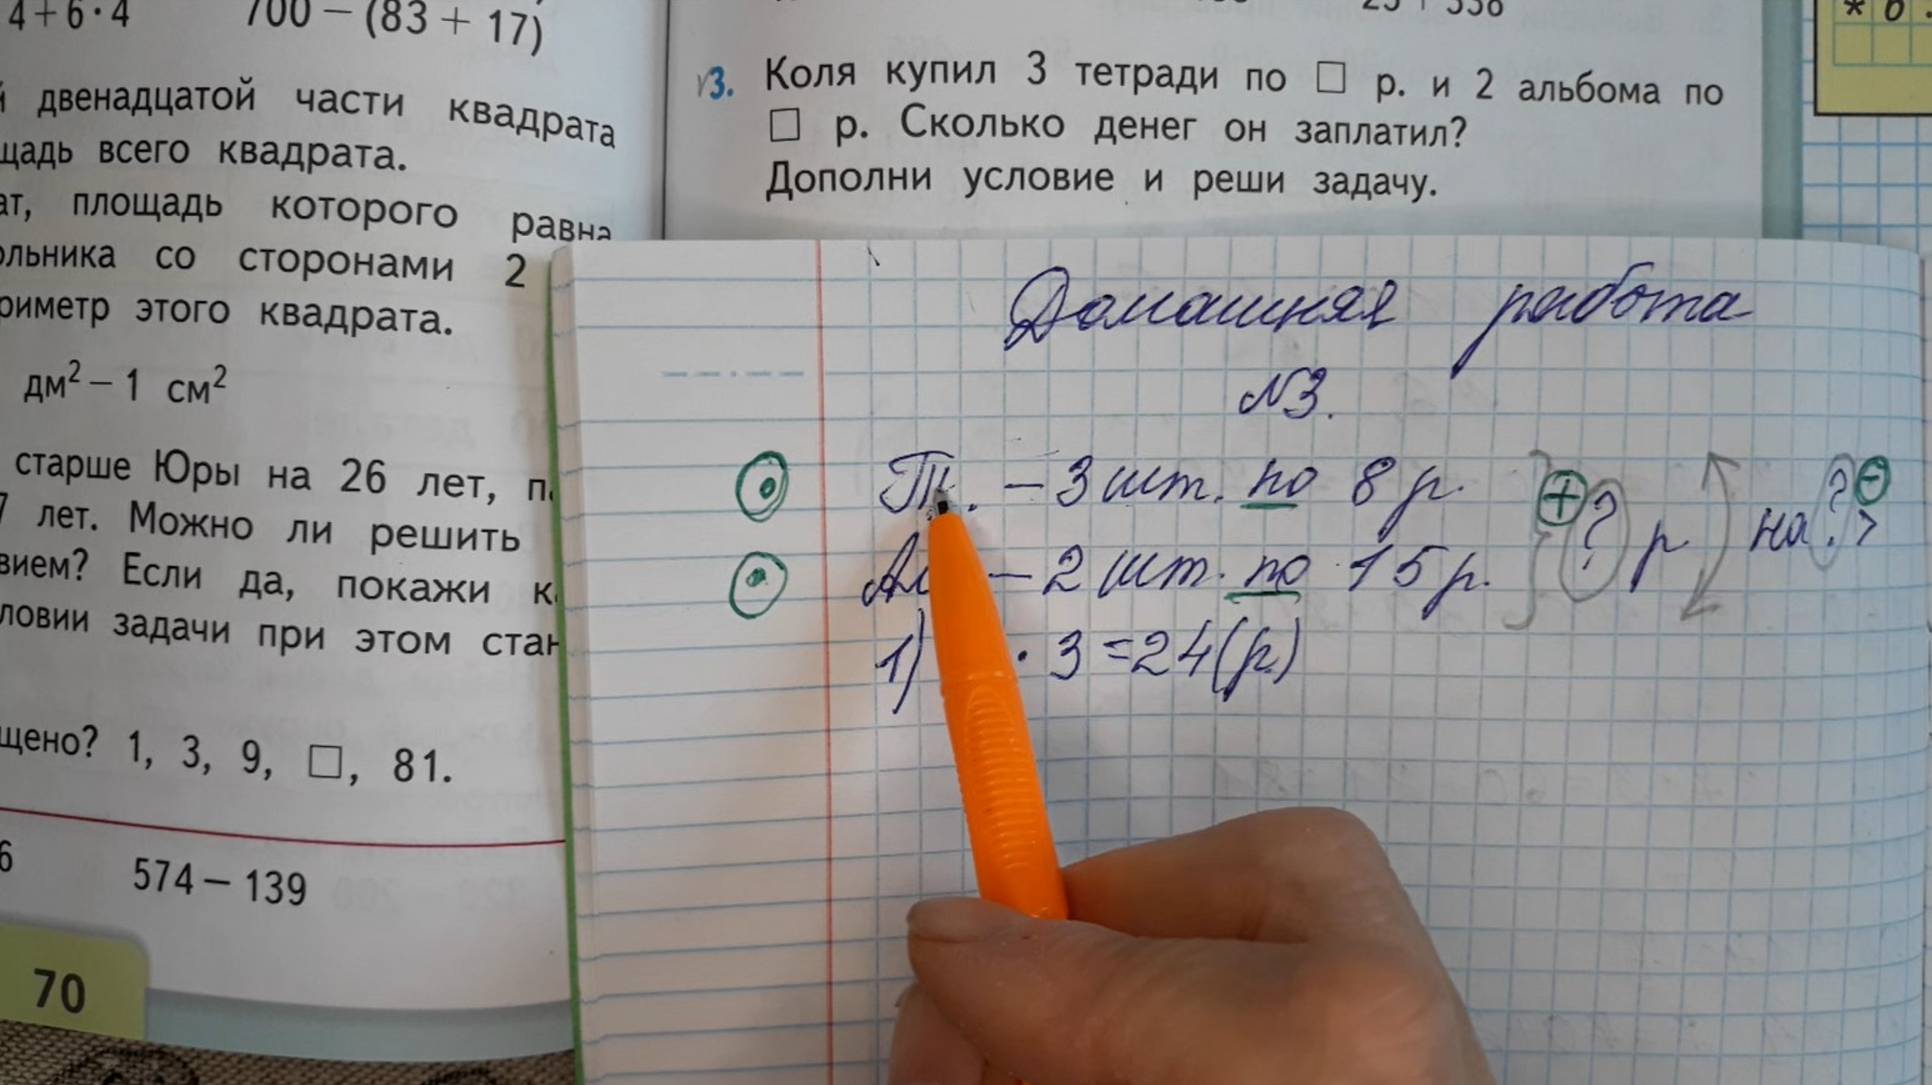 4 + 6 · 4 700 − (83 + 17)
двенадцатой части квадрата
щадь всего квадрата.
ат, площадь которого равна
ольника со сторонами 2
риметр этого квадрата.
дм² − 1 см²
старше Юры на 26 лет,
7 лет. Можно ли решить
вием? Если да, покажи
ловии задачи при этом стан
щено? 1, 3, 9, □, 81.
6 574 − 139
70
3. Коля купил 3 тетради по □ р. и 2 альбома по
□ р. Сколько денег он заплатил?
Дополни условие и реши задачу.
Домашняя работа
№3.
Тт. – 3 шт. по 8 р.
Ал – 2 шт. по 15 р.
+ ? р на ? > −
1) · 3 = 24 (р.)